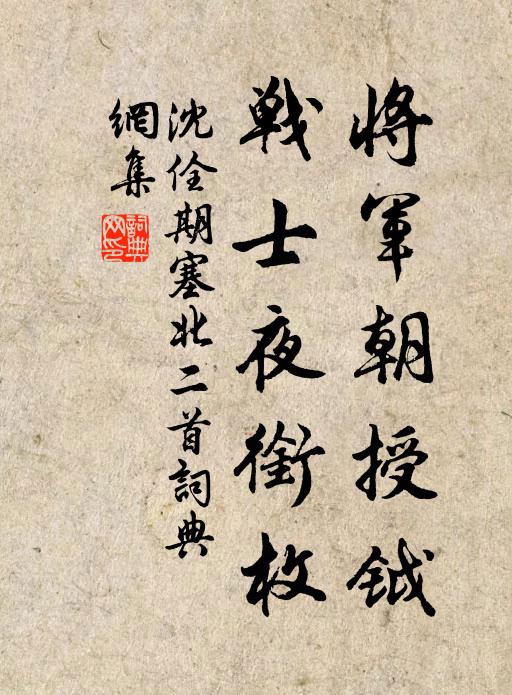 將軍朝授鉞
戰士夜銜枚
沈佺期塞北二首詞典
網集
詞典
网印